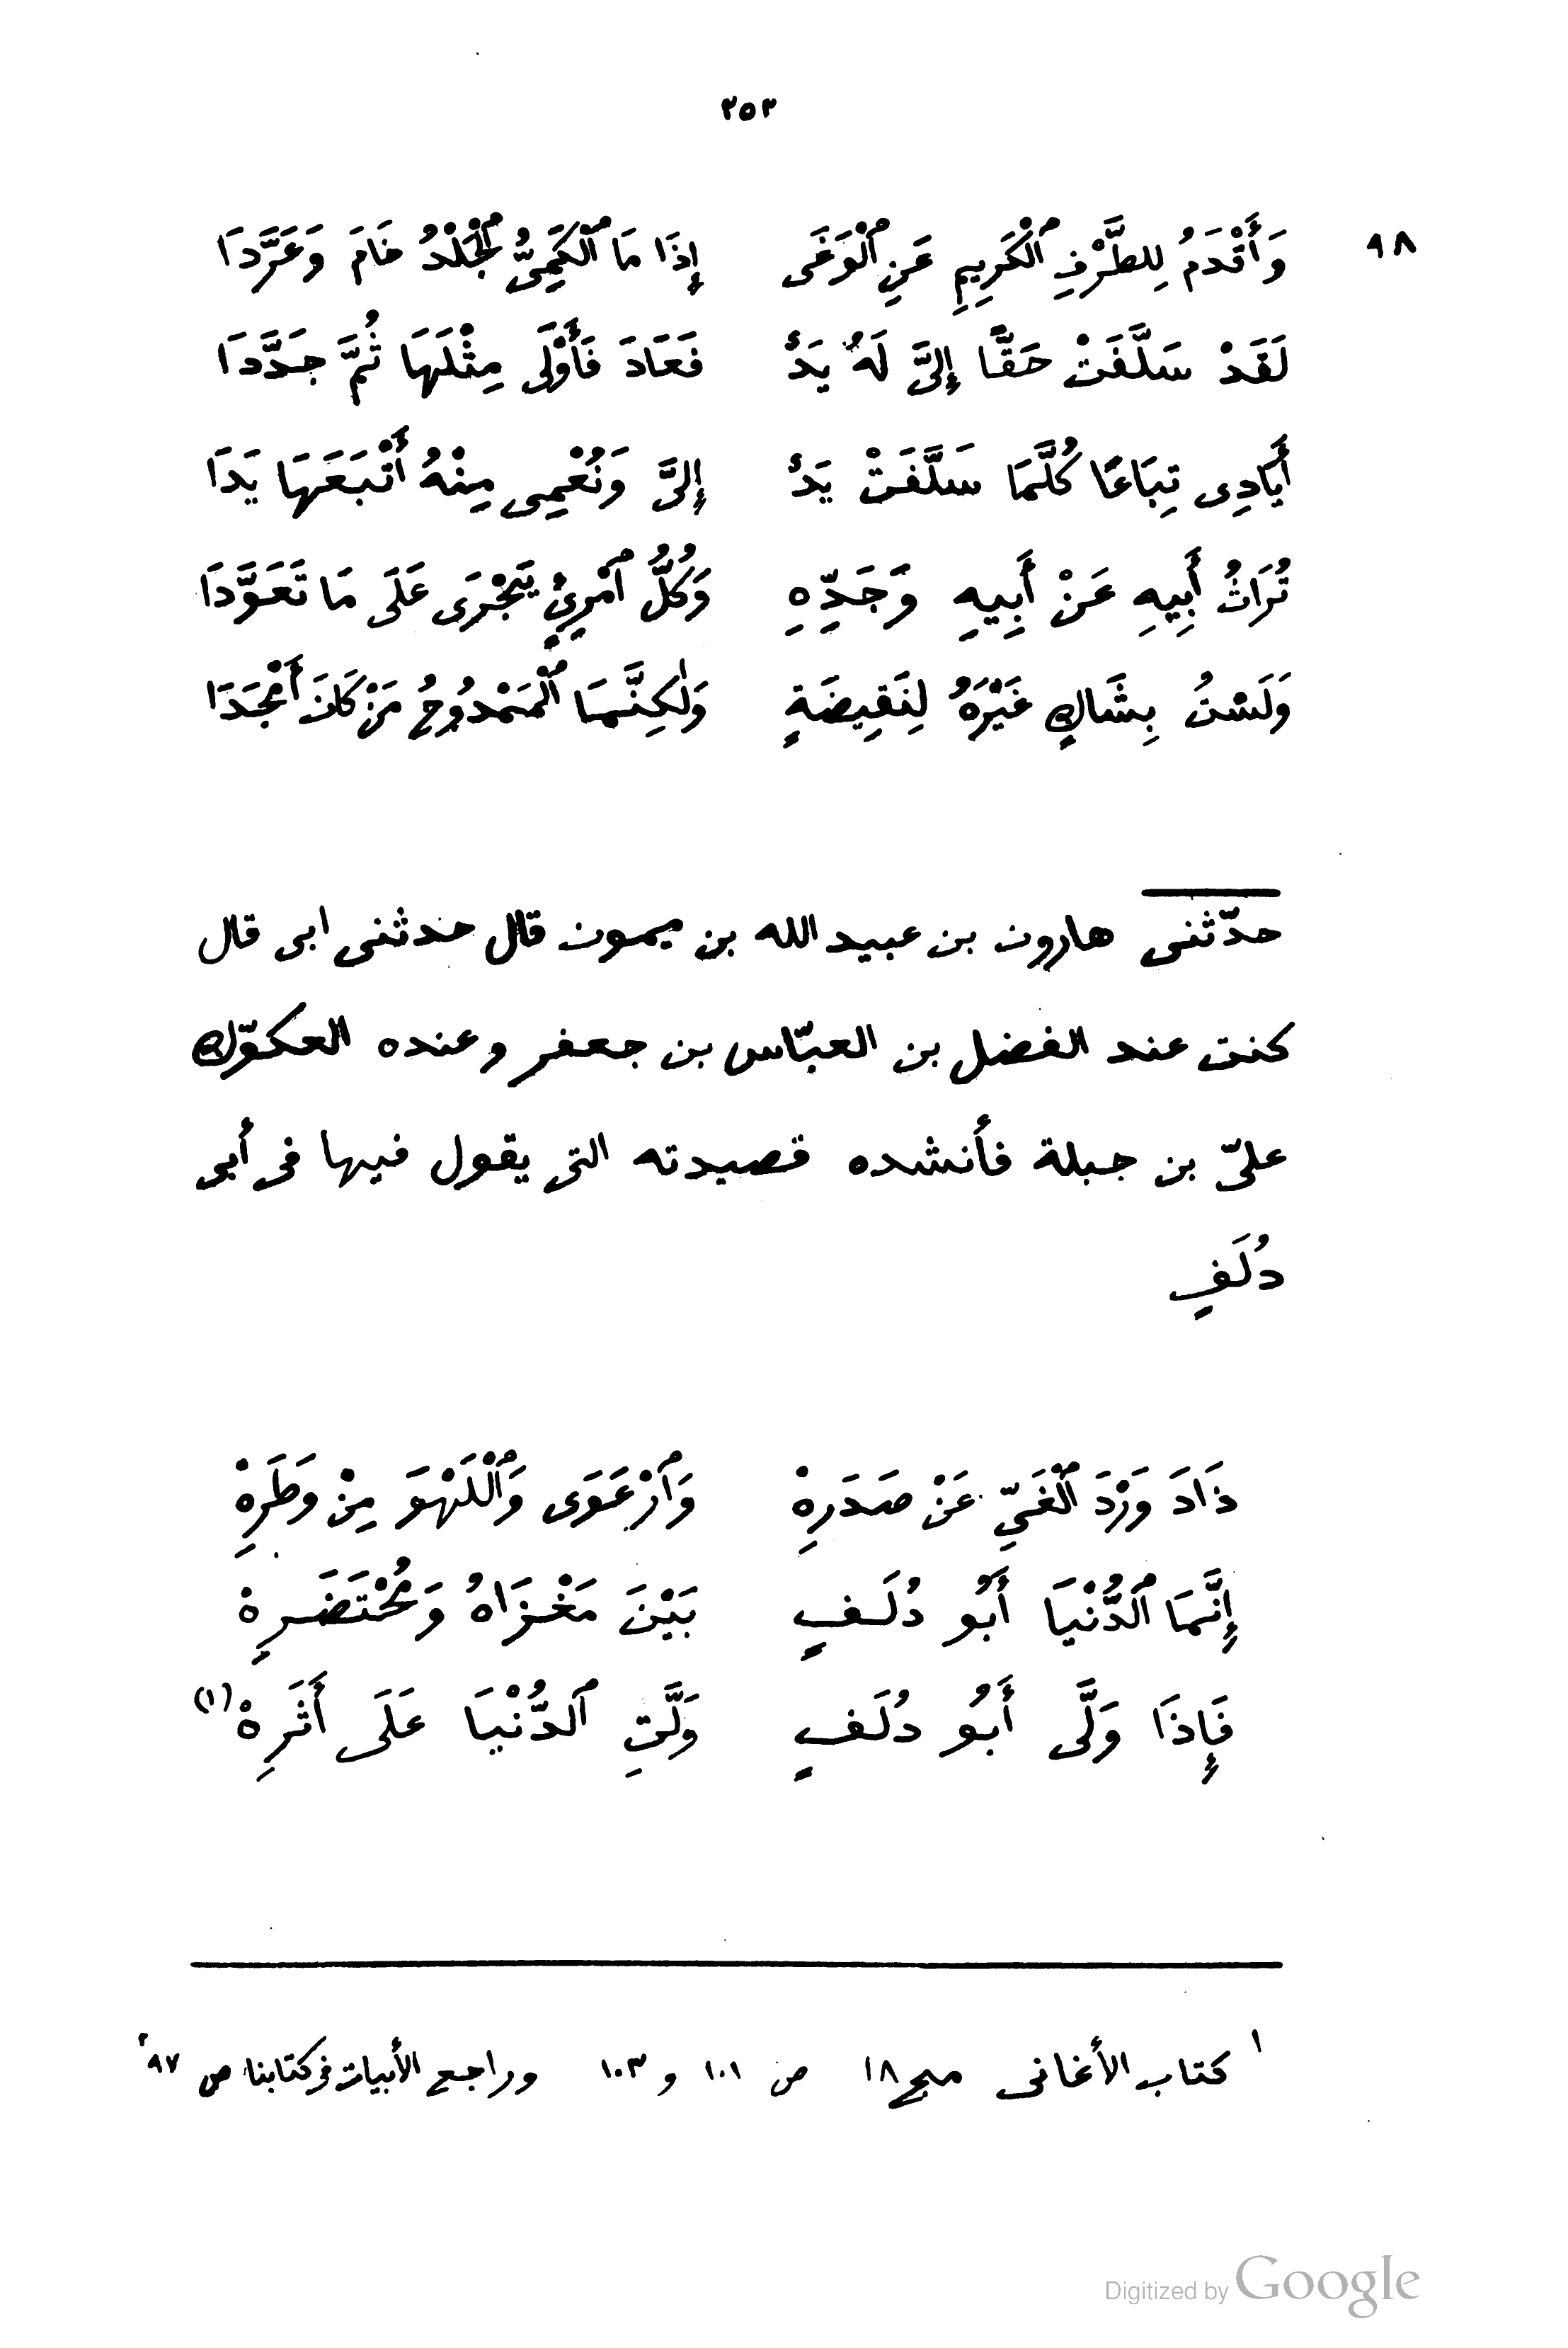 ٢٥٣
٩٨
وَأَقْدَمُ لِلطَّرْفِ ٱلْكَرِيمِ عَنِ ٱلْوَغَى إِذَا مَا ٱلْكَمِيُّ ٱلْجَلْدُ خَامَ وَعَرَّدَا
لَقَدْ سَلَّفَتْ حَقًّا إِلَىَّ لَهُ يَدٌ فَعَادَ فَأَوْلَى مِثْلَهَا ثُمَّ جَدَّدَا
أَيَادِى تِبَاعًا كُلَّمَا سَلَّفَتْ يَدٌ إِلَىَّ وَنُعْمِى مِنْهُ أَتْبَعَهَا يَدَا
تُرَاثُ أَبِيهِ عَنْ أَبِيهِ وَجَدِّهِ وَكُلُّ ٱمْرِئٍ يَجْرَى عَلَى مَا تَعَوَّدَا
وَلَسْتُ بِشَاكٍ غَيْرَهُ لِنَقِيضَةٍ وَلٰكِنَّمَا ٱلْمَمْدُوحُ مَنْ كَانَ أَمْجَدَا
حدّثنى هارون بن عبيد الله بن ميمون قال حدثنى ابى قال
كنت عند الفضل بن العبّاس بن جعفر وعنده العكوّك
علىّ بن جبلة فأنشده قصيدته التى يقول فيها فى أبى
دُلَفٍ
ذَادَ وَرْدَ ٱلْغَىِّ عَنْ صَدَرِهْ وَٱرْعَوَى وَٱلْلَهْوَ مِنْ وَطَرِهْ
إِنَّمَا ٱلدُّنْيَا أَبُو دُلَفٍ بَيْنَ مَغْزَاهُ وَمُحْتَضَرِهْ
فَإِذَا وَلَّى أَبُو دُلَفٍ وَلَّتِ ٱلدُّنْيَا عَلَى أَثَرِهْ (١)
١ كتاب الأغانى مج ١٨ ص ١٠١ و ١٠٣ وراجع الأبيات فى كتابنا ص ٩٧ ٢
Digitized by Google